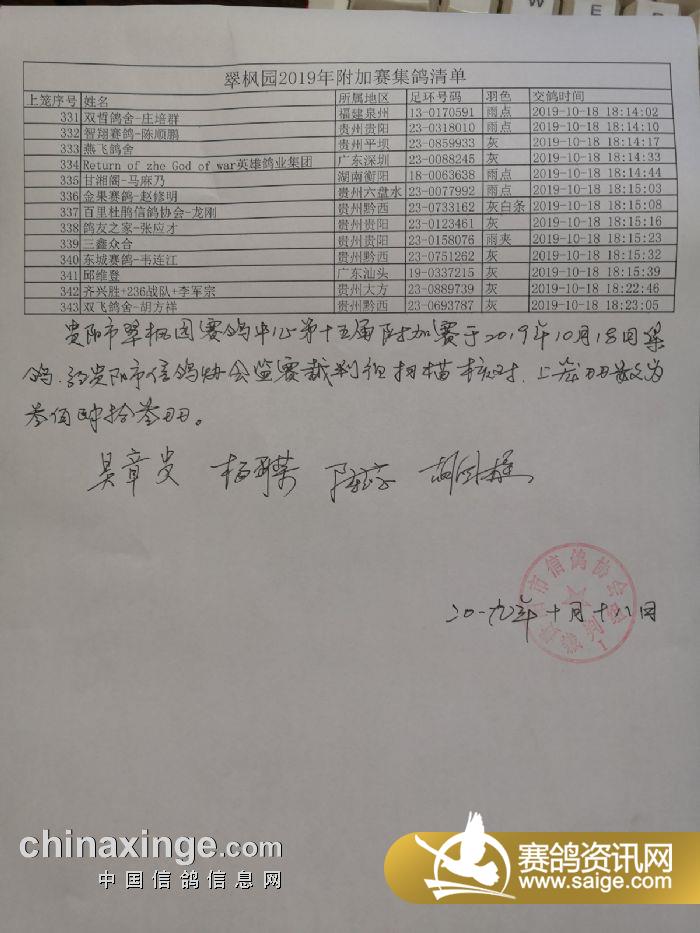 W E
翠枫园2019年附加赛集鸽清单
上笼序号 姓名 所属地区 足环号码 羽色 交鸽时间
331 双哲鸽舍-庄培群 福建泉州 13-0170591 雨点 2019-10-18 18:14:02
332 智翔赛鸽-陈顺鹏 贵州贵阳 23-0318010 雨点 2019-10-18 18:14:10
333 燕飞鸽舍 贵州平坝 23-0859933 灰 2019-10-18 18:14:17
334 Return of zhe God of war英雄鸽业集团 广东深圳 23-0088245 灰 2019-10-18 18:14:33
335 甘湘阁-马麻乃 湖南衡阳 18-0063638 雨点 2019-10-18 18:14:44
336 金果赛鸽-赵修明 贵州六盘水 23-0077992 雨点 2019-10-18 18:15:03
337 百里杜鹃信鸽协会-龙刚 贵州黔西 23-0733162 灰白条 2019-10-18 18:15:08
338 鸽友之家-张应才 贵州贵阳 23-0123461 灰 2019-10-18 18:15:16
339 三鑫众合 贵州贵阳 23-0158076 雨夹 2019-10-18 18:15:23
340 东城赛鸽-韦连江 贵州黔西 23-0751262 灰 2019-10-18 18:15:32
341 邱维登 广东汕头 19-0337215 灰 2019-10-18 18:15:39
342 齐兴胜+236战队+李军宗 贵州大方 23-0889739 灰 2019-10-18 18:22:46
343 双飞鸽舍-胡方祥 贵州黔西 23-0693787 灰 2019-10-18 18:23:05
贵阳市翠枫园赛鸽中心第十五届附加赛于2019年10月18日集
鸽.经贵阳市信鸽协会监赛裁判组扫描核对.上笼羽数为
叁佰肆拾叁羽。
吴章贵
市信鸽协会
裁判
1
二0一九年十月十八日
chinaxinge.com
中国信鸽信息网
赛鸽资讯网
www.saige.com